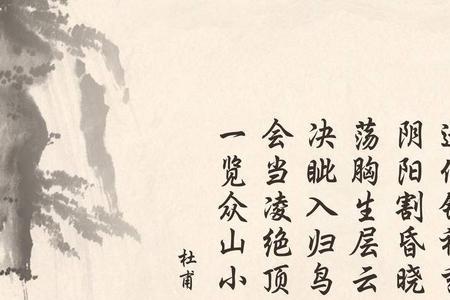 阴阳割昏晓
荡胸生层云
决眦入归鸟
会当凌绝顶
一览众山小
杜甫